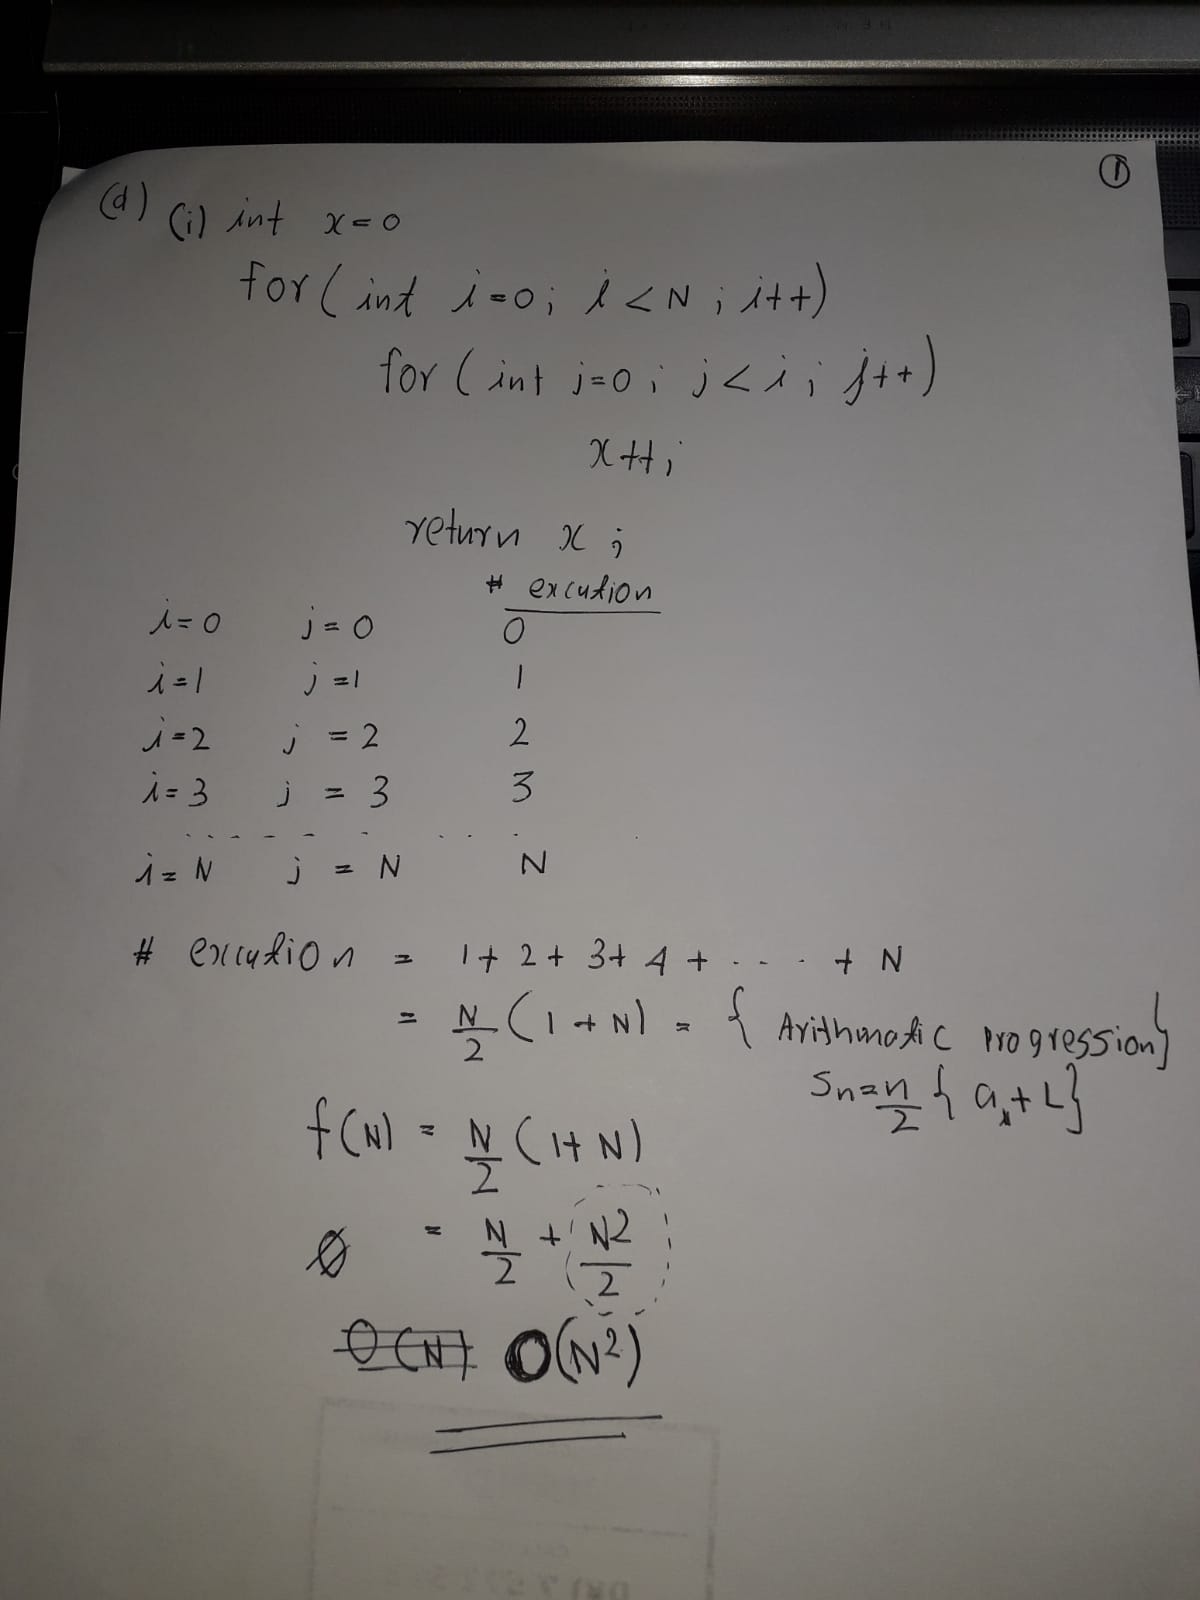 ①
(d) (i) int x=0
for( int i=0; i<N; i++)
for( int j=0; j<i; j++)
x++;
return x;
# excution
i=0 j=0 0
i=1 j=1 1
i=2 j=2 2
i=3 j=3 3
i=N j=N N
# excution = 1+2+3+4+ .... +N
= N/2 (1+N) = { Arithmatic progression}
Sn=n/2 {a,+L}
f(N) = N/2 (1+N)
= N/2 + N2/2
O(N) O(N²)